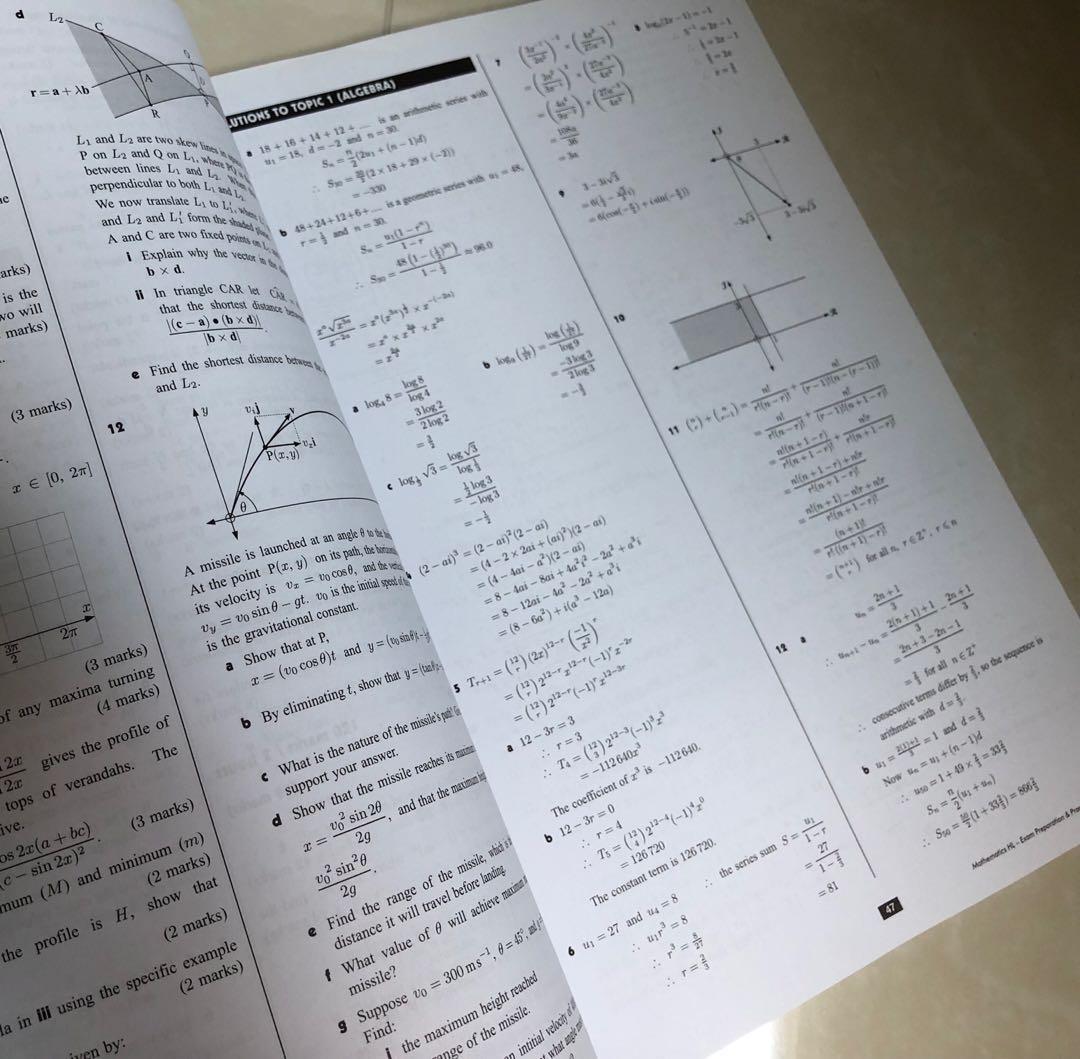 d
L₂
C
Q
A
R
P
r = a + λb
L₁ and L₂ are two skew lines in
P on L₂ and Q on L₁, where PQ is
between lines L₁ and L₂. When
perpendicular to both L₁ and L₂.
We now translate L₁ to L₁′, where
and L₂ and L₁′ form the shaded plane.
A and C are two fixed points on
i Explain why the vector in the
b × d.
ii In triangle CAR let
that the shortest distance between
|(c − a) • (b × d)|
|b × d|
e Find the shortest distance between
and L₂.
12
y
vᵧj
v
vₓi
P(x, y)
θ
A missile is launched at an angle θ to the
At the point P(x, y) on its path, the horizontal
its velocity is vₓ = v₀ cos θ, and the vertical
vᵧ = v₀ sin θ − gt. v₀ is the initial speed of the
is the gravitational constant.
a Show that at P,
x = (v₀ cos θ)t and y = (v₀ sin θ)t −
b By eliminating t, show that y = (tan θ)x −
c What is the nature of the missile's path?
support your answer.
d Show that the missile reaches its maximum
x = v₀² sin 2θ / 2g, and that the maximum
v₀² sin² θ / 2g.
e Find the range of the missile, which is
distance it will travel before landing.
f What value of θ will achieve maximum
missile?
g Suppose v₀ = 300 m s⁻¹, θ = 45°, and
Find:
i the maximum height reached
range of the missile.
initial velocity of
what angle
arks)
is the
wo will
marks)
(3 marks)
x ∈ [0, 2π]
x
3π/2
2π
(3 marks)
of any maxima turning
(4 marks)
2x / 2x gives the profile of
tops of verandahs. The
ive.
(3 marks)
os 2x(a + bc)
(c − sin 2x)².
mum (M) and minimum (m)
(2 marks)
the profile is H, show that
(2 marks)
la in iii using the specific example
(2 marks)
iven by:
LUTIONS TO TOPIC 1 (ALGEBRA)
a 18 + 16 + 14 + 12 + .... is an arithmetic series with
u₁ = 18, d = −2 and n = 30.
Sₙ = n/2 (2u₁ + (n − 1)d)
∴ S₃₀ = 30/2 (2 × 18 + 29 × (−2))
= −330
b 48 + 24 + 12 + 6 + .... is a geometric series with u₁ = 48,
r = ½ and n = 30.
Sₙ = u₁(1 − rⁿ) / 1 − r
∴ S₃₀ = 48(1 − (½)³⁰) / 1 − ½ ≈ 96.0
a log₄ 8 = log 8 / log 4
= 3 log 2 / 2 log 2
= 3/2
b log₉ (1/27) = log(1/27) / log 9
= −3 log 3 / 2 log 3
= −3/2
c log⅓ √3 = log √3 / log ⅓
= ½ log 3 / −log 3
= −½
(2 − ai)³ = (2 − ai)²(2 − ai)
= (4 − 2 × 2ai + (ai)²)(2 − ai)
= (4 − 4ai − a²)(2 − ai)
= 8 − 4ai − 8ai + 4a²i² − 2a² + a³i
= 8 − 12ai − 4a² − 2a² + a³i
= (8 − 6a²) + i(a³ − 12a)
5 Tᵣ₊₁ = (12 r)(2x)¹²⁻ʳ (−1/x²)ʳ
= (12 r) 2¹²⁻ʳ x¹²⁻ʳ (−1)ʳ x⁻²ʳ
= (12 r) 2¹²⁻ʳ (−1)ʳ x¹²⁻³ʳ
a 12 − 3r = 3
∴ r = 3
∴ T₄ = (12 3) 2¹²⁻³ (−1)³ x³
= −112 640x³
The coefficient of x³ is −112 640.
b 12 − 3r = 0
∴ r = 4
∴ T₅ = (12 4) 2¹²⁻⁴ (−1)⁴ x⁰
= 126 720
The constant term is 126 720.
6 u₁ = 27 and u₄ = 8
∴ u₁r³ = 8
∴ r³ = 8/27
∴ r = 2/3
∴ the series sum S = u₁ / 1 − r
= 27 / 1 − 2/3
= 81
7
= 108a / 36
= 3a
8 log₅(2x − 1) = −1
∴ 5⁻¹ = 2x − 1
9 3 − 3i√3
−3√3
3 − 3i√3
10
11 (n r) + (n r−1) = n! / r!(n − r)! + n! / (r − 1)!(n − (r − 1))!
= n! / r!(n − r)! + n! / (r − 1)!(n + 1 − r)!
= n!(n + 1 − r) / r!(n + 1 − r)! + n!r / r!(n + 1 − r)!
= n!(n + 1 − r) + n!r / r!(n + 1 − r)!
= n!(n + 1) − n!r + n!r / r!(n + 1 − r)!
= (n + 1)! / r!((n + 1) − r)!
= (n+1 r) for all n, r ∈ ℤ⁺, r ≤ n
12 a uₙ = 2n + 1 / 3
∴ uₙ₊₁ − uₙ = 2(n + 1) + 1 / 3 − 2n + 1 / 3
= 2n + 3 − 2n − 1 / 3
= 2/3 for all n ∈ ℤ⁺
consecutive terms differ by 2/3, so the sequence is
arithmetic with d = 2/3.
b u₁ = 2(1)+1 / 3 = 1 and d = 2/3
Now uₙ = u₁ + (n − 1)d
∴ u₅₀ = 1 + 49 × 2/3 = 33⅔
Sₙ = n/2 (u₁ + uₙ)
∴ S₅₀ = 50/2 (1 + 33⅔) = 866⅔
Mathematics HL – Exam Preparation & Pra
47